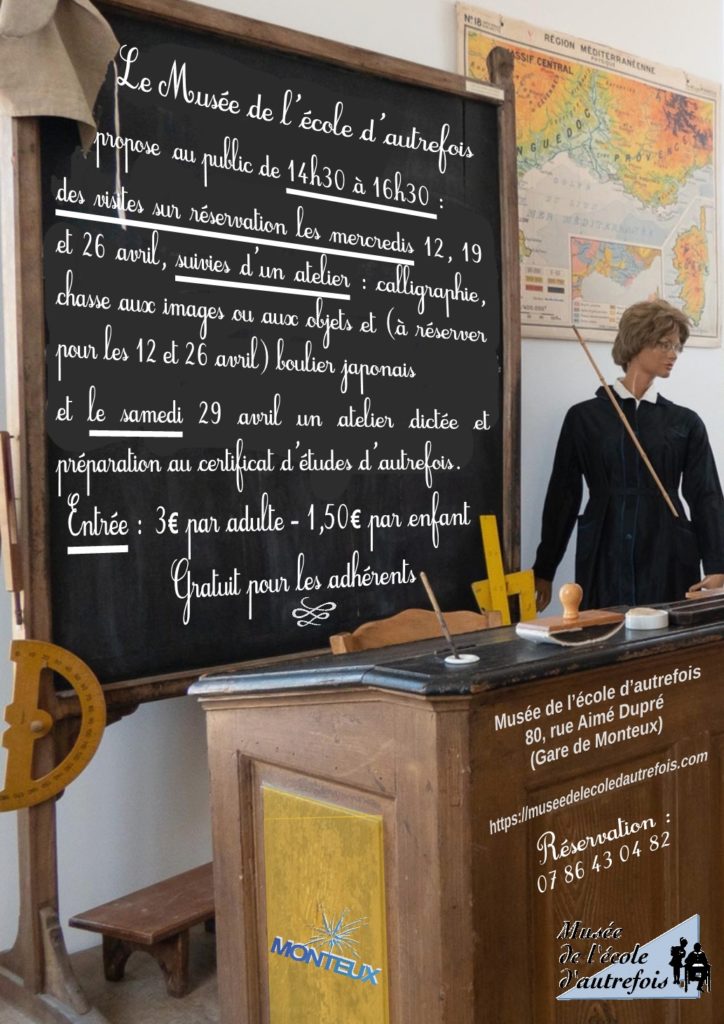 Le Musée de l'école d'autrefois
propose au public de 14h30 à 16h30 :
des visites sur réservation les mercredis 12, 19
et 26 avril, suivies d'un atelier : calligraphie,
chasse aux images ou aux objets et (à réserver
pour les 12 et 26 avril) boulier japonais
et le samedi 29 avril un atelier dictée et
préparation au certificat d'études d'autrefois.
Entrée : 3€ par adulte - 1,50€ par enfant
Gratuit pour les adhérents
N°18
RÉGION MÉDITERRANÉENNE
PHYSIQUE
MASSIF CENTRAL
LANGUEDOC
PROVENCE
Musée de l'école d'autrefois
80, rue Aimé Dupré
(Gare de Monteux)
https://museedelecoledautrefois.com
Réservation :
07 86 43 04 82
MONTEUX
Musée
de l'école
d'autrefois